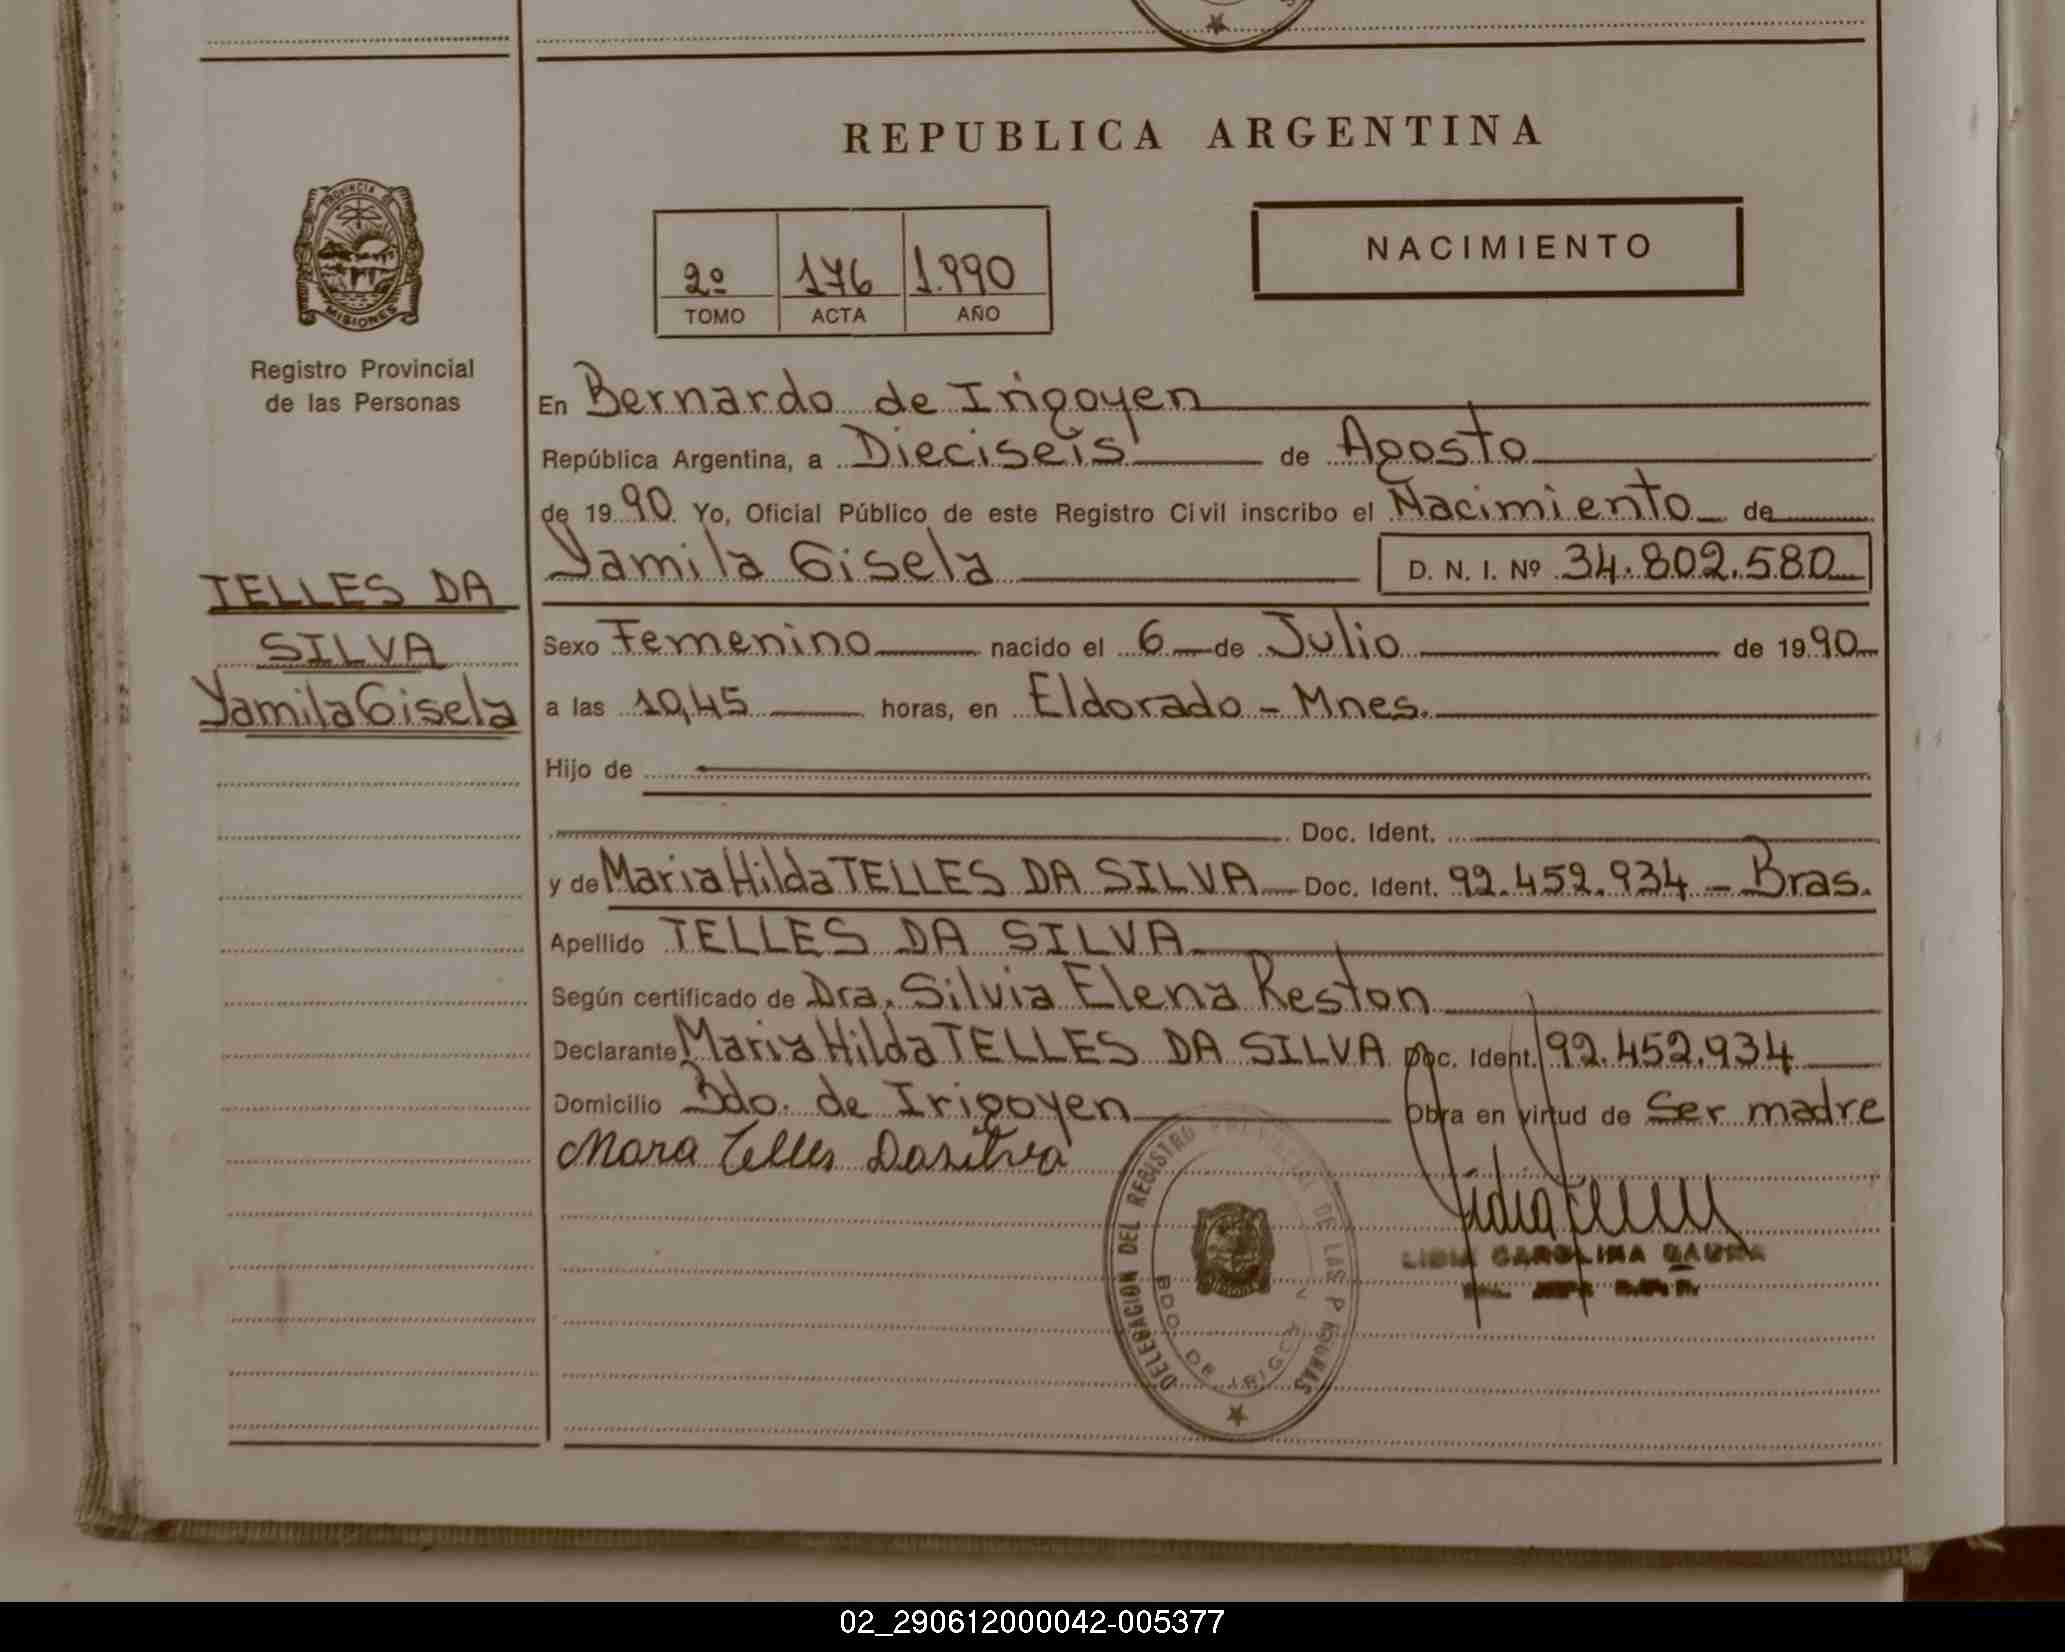 REPUBLICA ARGENTINA
PROVINCIA
MISIONES
Registro Provincial
de las Personas
2º 176 1.990
TOMO ACTA AÑO
NACIMIENTO
En Bernardo de Irigoyen
República Argentina, a Dieciseis de Agosto
de 1990 Yo, Oficial Público de este Registro Civil inscribo el Nacimiento de
Yamila Gisela D. N. I. Nº 34.802.580
TELLES DA
SILVA
Yamila Gisela
Sexo Femenino nacido el 6 de Julio de 1990
a las 10,45 horas, en Eldorado - Mnes.
Hijo de
Doc. Ident.
y de Maria Hilda TELLES DA SILVA Doc. Ident. 92.452.934 - Bras.
Apellido TELLES DA SILVA
Según certificado de Dra. Silvia Elena Reston
Declarante Maria Hilda TELLES DA SILVA Doc. Ident. 92.452.934
Domicilio Bdo. de Irigoyen Obra en virtud de Ser madre
Mara Telles Dasilva
DELEGACION DEL REGISTRO PROVINCIAL DE LAS PERSONAS
BDO. DE IRIGOYEN
LIDIA CAROLINA
02_290612000042-005377